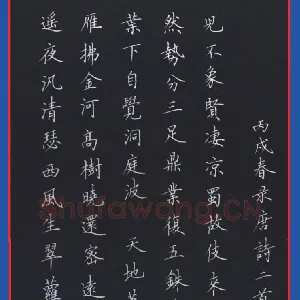 丙戌春录唐詩二首
兒不象賢凄涼蜀故伎来
然勢分三足鼎業復五銖
葉下自覺洞庭波 天地英
雁拂金河高樹曉還密遠
遥夜汎清瑟西風生翠蘿
Shufawang.CN